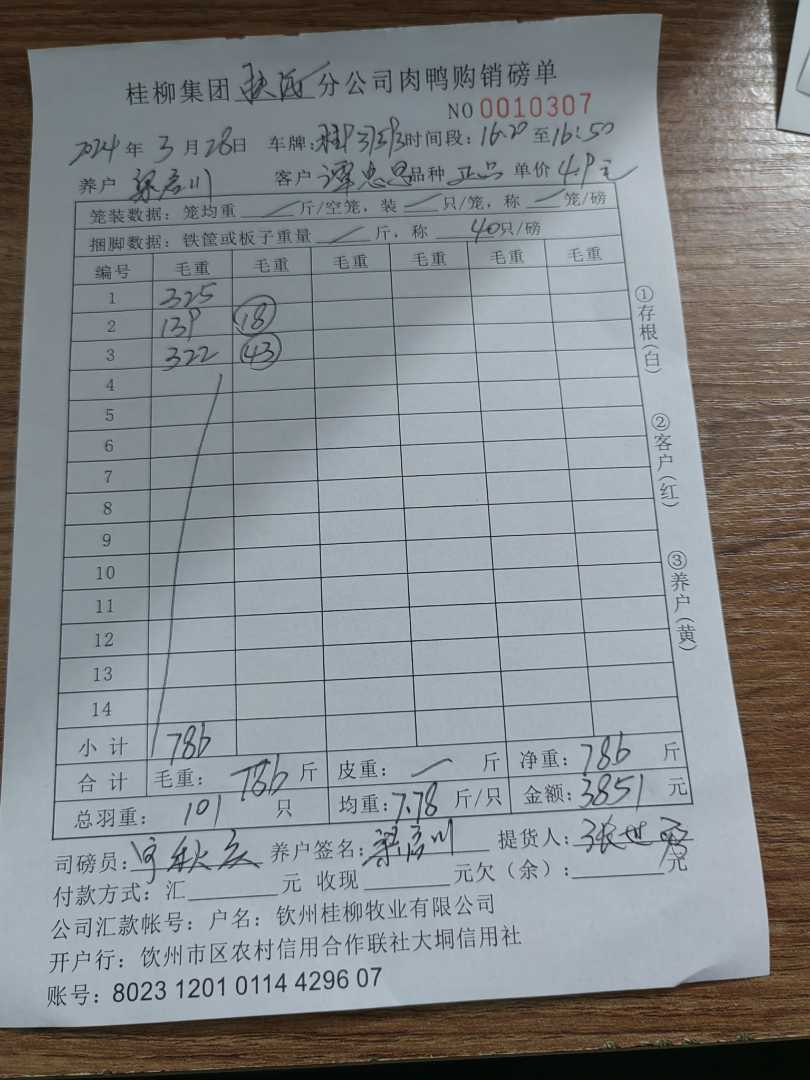 桂柳集团 分公司肉鸭购销磅单
NO 0010307
2024 年 3 月 28 日 车牌: 时间段: 16:20 至 16:50
养户 梁 川 客户 谭忠 品种 正品 单价 4.9 元
笼装数据: 笼均重 斤/空笼, 装 只/笼, 称 笼/磅
捆脚数据: 铁筐或板子重量 斤, 称 40 只/磅
编号 毛重 毛重 毛重 毛重 毛重 毛重
1 325
2 139 18
3 322 43
4
5
6
7
8
9
10
11
12
13
14
小计 786
合计 毛重: 786 斤 皮重: 斤 净重: 786 斤
总羽重: 101 只 均重: 7.78 斤/只 金额: 3851 元
①存根(白)
②客户(红)
③养户(黄)
司磅员: 秋 养户签名: 梁 川 提货人: 张世
付款方式: 汇 元 收现 元欠(余): 元
公司汇款帐号: 户名: 钦州桂柳牧业有限公司
开户行: 钦州市区农村信用合作联社大垌信用社
账号: 8023 1201 0114 4296 07